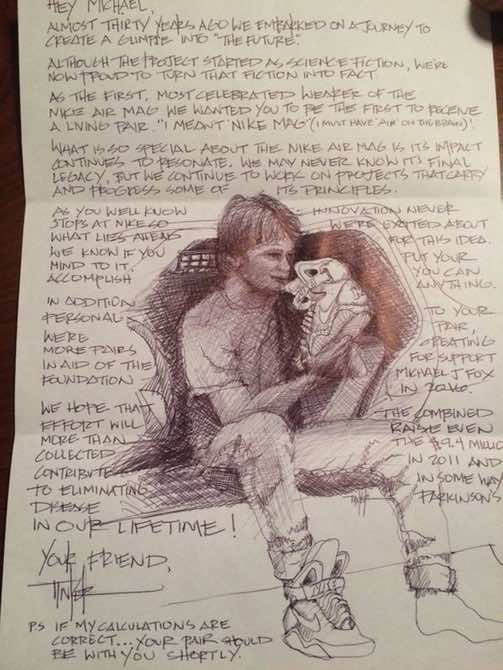 HEY MICHAEL,
ALMOST THIRTY YEARS AGO WE EMBARKED ON A JOURNEY TO
CREATE A GLIMPSE INTO "THE FUTURE."
ALTHOUGH THE PROJECT STARTED AS SCIENCE FICTION, WE'RE
NOW PROUD TO TURN THAT FICTION INTO FACT.
AS THE FIRST, MOST CELEBRATED WEARER OF THE
NIKE AIR MAG WE WANTED YOU TO BE THE FIRST TO RECEIVE
A LIVING PAIR. "I MEANT 'NIKE MAG' (I MUST HAVE 'AIR' ON THE BRAIN)!
WHAT IS SO SPECIAL ABOUT THE NIKE AIR MAG IS ITS IMPACT
CONTINUES TO RESONATE. WE MAY NEVER KNOW IT'S FINAL
LEGACY, BUT WE CONTINUE TO WORK ON PROJECTS THAT CARRY
AND PROGRESS SOME OF ITS PRINCIPLES.
AS YOU WELL KNOW INNOVATION NEVER
STOPS AT NIKE SO WE'RE EXCITED ABOUT
WHAT LIES AHEAD FOR THIS IDEA.
WE KNOW IF YOU PUT YOUR
MIND TO IT, YOU CAN
ACCOMPLISH ANYTHING.
IN ADDITION TO YOUR
PERSONAL PAIR,
WE'RE CREATING
MORE PAIRS FOR SUPPORT
IN AID OF THE MICHAEL J FOX
FOUNDATION IN 2016.
WE HOPE THAT THE COMBINED
EFFORT WILL RAISE EVEN
MORE THAN THE $9.4 MILLIO
COLLECTED IN 2011 AND
CONTRIBUTE IN SOME WAY
TO ELIMINATING PARKINSON'S
DISEASE
IN OUR LIFETIME!
YOUR FRIEND,
TINKER
PS IF MY CALCULATIONS ARE
CORRECT... YOUR PAIR SHOULD
BE WITH YOU SHORTLY.